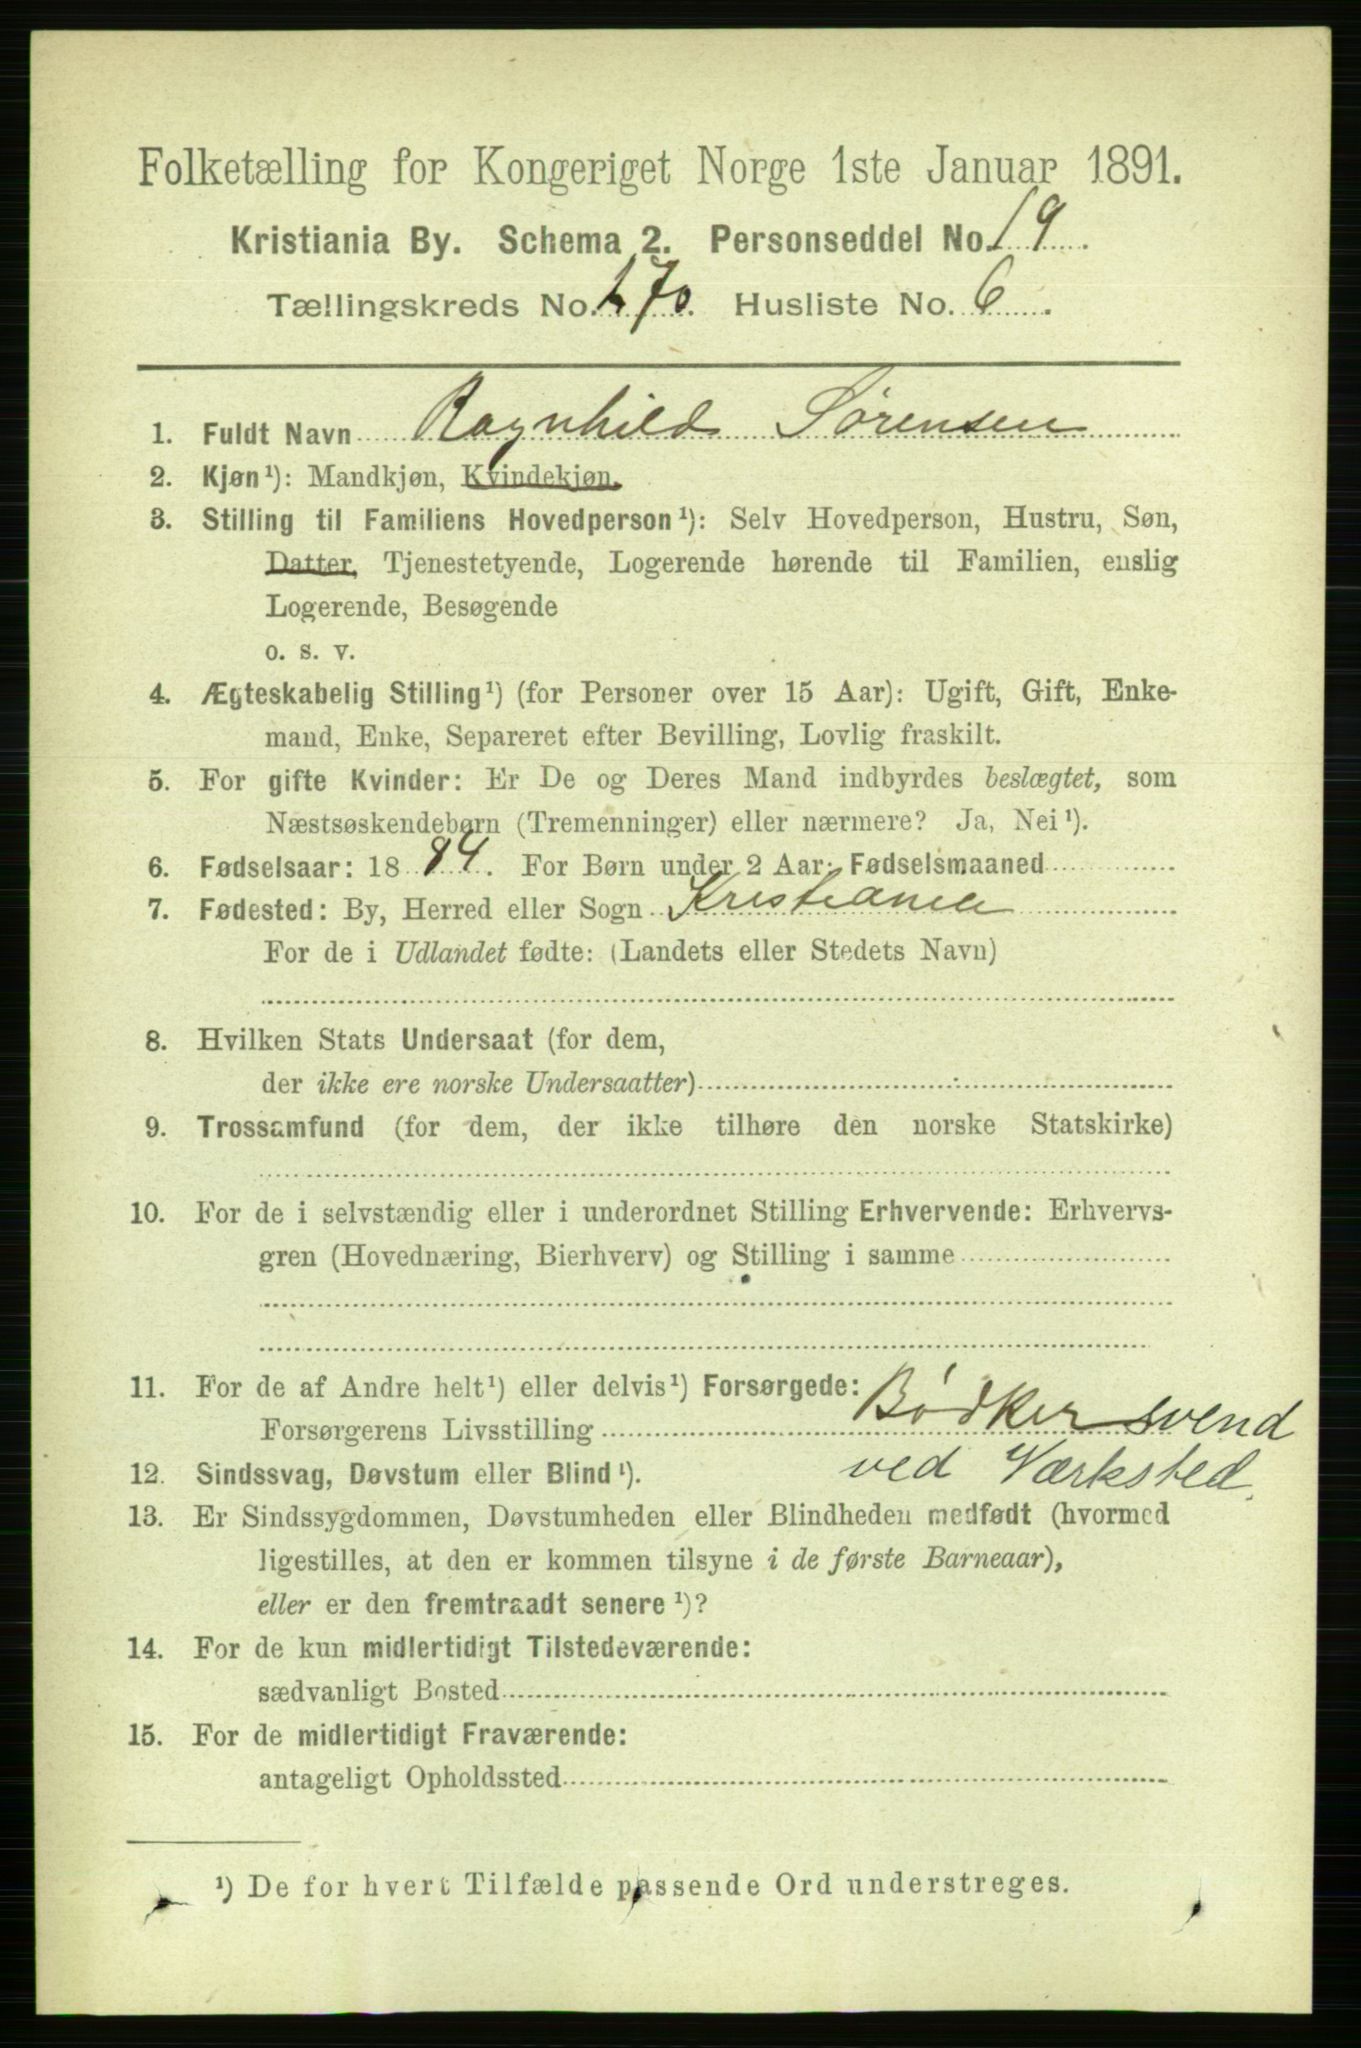 Folketælling for Kongeriget Norge 1ste Januar 1891.
Kristiania By. Schema 2. Personseddel No. 19.
Tællingskreds No. 270. Husliste No. 6.
1. Fuldt Navn Ragnhild Sørensen
2. Kjøn¹): Mandkjøn, Kvindekjøn.
3. Stilling til Familiens Hovedperson¹): Selv Hovedperson, Hustru, Søn,
Datter, Tjenestetyende, Logerende hørende til Familien, enslig
Logerende, Besøgende
o. s. v.
4. Ægteskabelig Stilling¹) (for Personer over 15 Aar): Ugift, Gift, Enke-
mand, Enke, Separeret efter Bevilling, Lovlig fraskilt.
5. For gifte Kvinder: Er De og Deres Mand indbyrdes beslægtet, som
Næstsøskendebørn (Tremenninger) eller nærmere? Ja, Nei¹).
6. Fødselsaar: 1884. For Børn under 2 Aar: Fødselsmaaned
7. Fødested: By, Herred eller Sogn Kristiania
For de i Udlandet fødte: (Landets eller Stedets Navn)
8. Hvilken Stats Undersaat (for dem,
der ikke ere norske Undersaatter)
9. Trossamfund (for dem, der ikke tilhøre den norske Statskirke)
10. For de i selvstændig eller i underordnet Stilling Erhvervende: Erhvervs-
gren (Hovednæring, Bierhverv) og Stilling i samme
11. For de af Andre helt¹) eller delvis¹) Forsørgede:
Forsørgerens Livsstilling Bødkersvend
ved Værksted.
12. Sindssvag, Døvstum eller Blind¹).
13. Er Sindssygdommen, Døvstumheden eller Blindheden medfødt (hvormed
ligestilles, at den er kommen tilsyne i de første Barneaar),
eller er den fremtraadt senere¹)?
14. For de kun midlertidigt Tilstedeværende:
sædvanligt Bosted
15. For de midlertidigt Fraværende:
antageligt Opholdssted
¹) De for hvert Tilfælde passende Ord understreges.